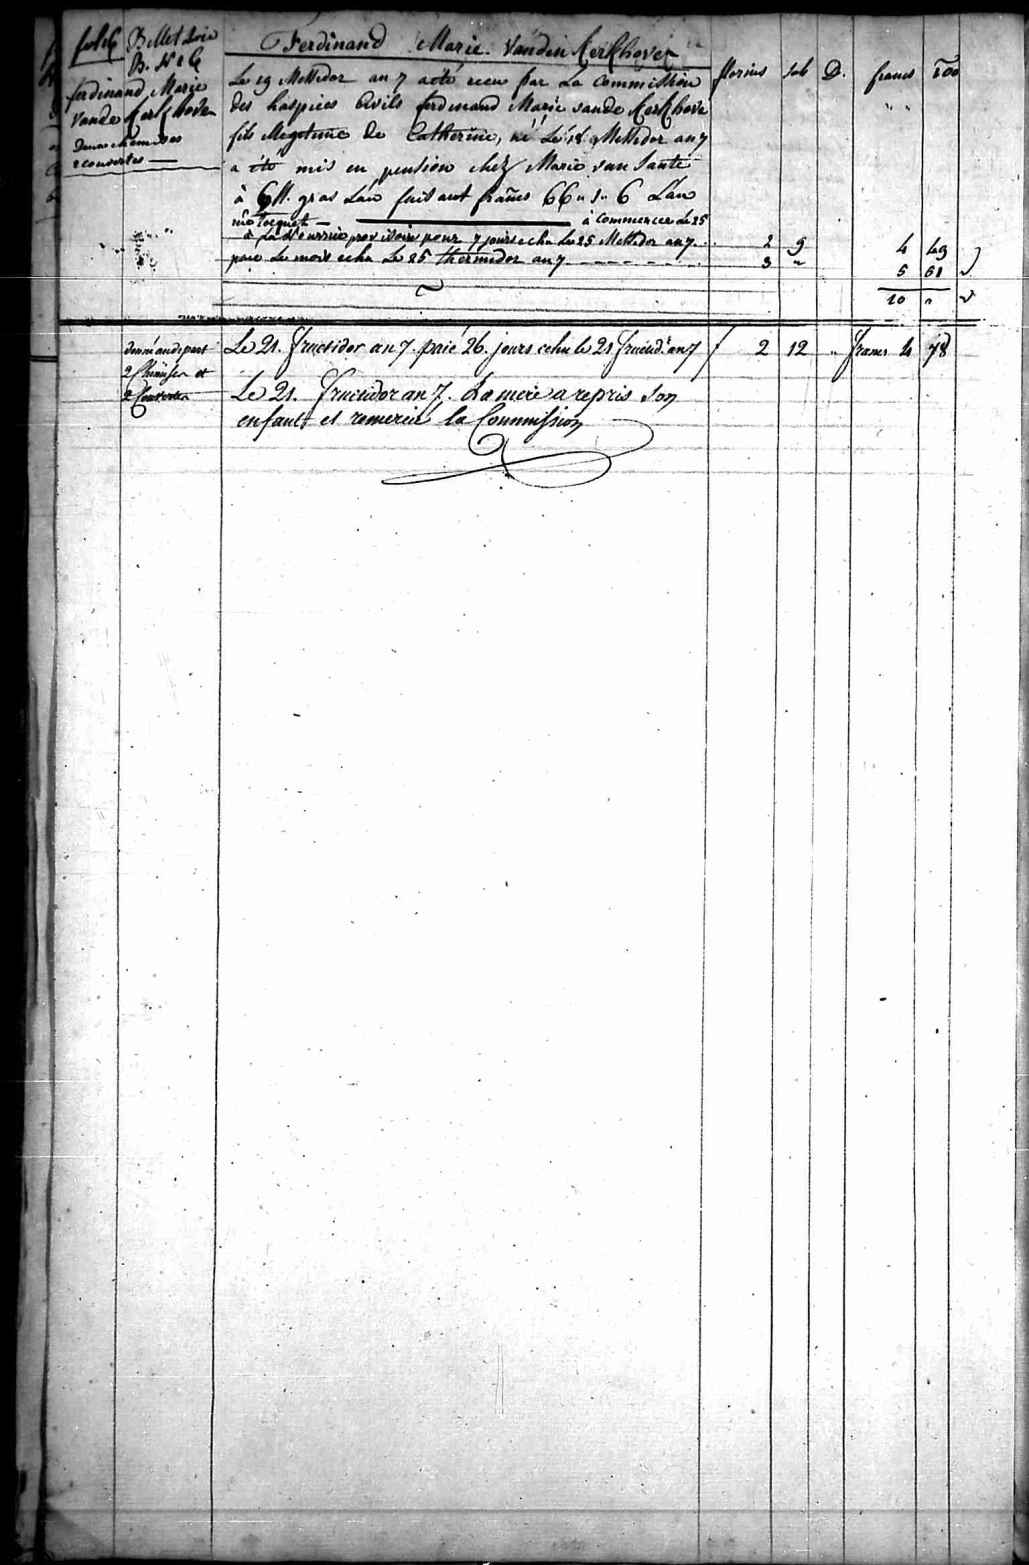 fol. 6
Billet Loie
B. N° 16
ferdinand Marie
Vande Kerkhove
Deux chemises
2 couvertes —
Ferdinand Marie Vanden Kerkhoven
Le 19 Messidor an 7 a été recu par La Commission
des hospices Civils ferdinand Marie vande Kerkhove
fils illegitime de Catherine, né Le 18 Messidor an 7
a été mis en pension chez Marie van Sante
à 6 ll. gros L'an faisant francs 66 " 1 " 6 L'an
à Commencer Le 25
à La Nourrice provisoire pour 7 jours echu Le 25 Messidor an 7
paié Le mois echu Le 25 thermidor an 7
florins sols D. francs 100
2 9 4 49
3 " 5 51
10 "
2 Chemises et
2 Couvertes
Le 21. fructidor an 7. paié 26. jours echu le 21 fructid. an 7 f 2 12 " francs 4 78
Le 21. Fructidor an 7. La mere a repris son
enfant et remercié la Commission